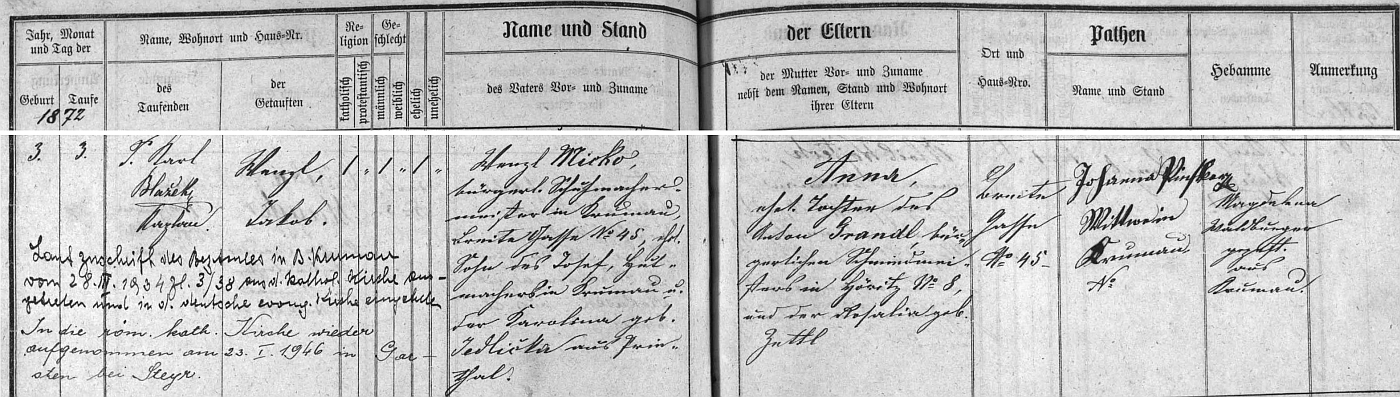 Jahr, Monat und Tag der
Geburt
Taufe
1872
Name, Wohnort und Haus-Nr.
des Taufenden
der Getauften
Religion
katholisch
protestantisch
Geschlecht
männlich
weiblich
ehelich
unehelich
Name und Stand
des Vaters Vor- und Zuname
der Eltern
der Mutter Vor- und Zuname
nebst dem Namen, Stand und Wohnort
ihrer Eltern
Pathen
Ort und
Haus-Nro.
Name und Stand
Hebamme
Anmerkung
3. 3.
P. Karl
Blažek,
Kaplan.
Wenzl,
Jakob.
1 " 1 " 1 "
Laut Zuschrift des Bez in B. Krumau
vom 28. III. 1934 Zl. 3/38 aus d. kathol. Kirche aus-
getreten und in d. deutsche evang. Kirche
In die röm. kath. Kirche wieder
aufgenommen am 23. I. 1946 in Gar-
sten bei Steyr.
Wenzl Micko,
bürgerl. Schuhmacher-
meister in Krumau,
Breite Gasse No 45, ehel.
Sohn des Josef, Hut-
machers in Krumau u.
der Karolina geb.
Jedlička aus Prin-
thal.
Anna,
ehel. Tochter des
Anton Grandl, bür-
gerlichen Schmiedmei-
sters in Höritz No 8,
und der Rosalia geb.
Zettl
Breite
Gasse
No 45
Johanna
Wittwe in
Krumau
No
Magdalena
Waldburger
geprüft.
aus
Krumau.